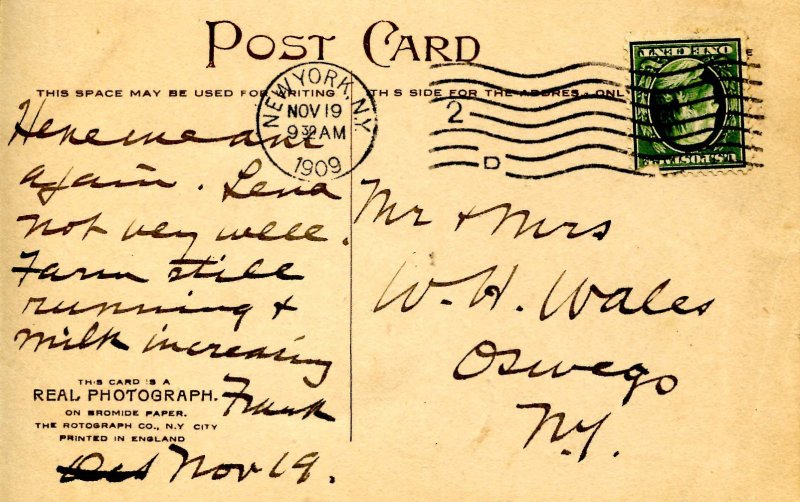 POST CARD
THIS SPACE MAY BE USED FOR WRITING
TH S SIDE FOR THE ADDRES ONL
E
NEW YORK, N.Y.
NOV 19
9 30 AM
1909
2
D
ONE CENT
U.S. POSTAGE
Here we are
again. Lena
not very well.
Farm still
running +
milk increasing
Frank
Nov 19.
Mr + Mrs
W. H. Wales
Oswego
N.Y.
THIS CARD IS A
REAL PHOTOGRAPH.
ON BROMIDE PAPER.
THE ROTOGRAPH CO., N.Y CITY
PRINTED IN ENGLAND